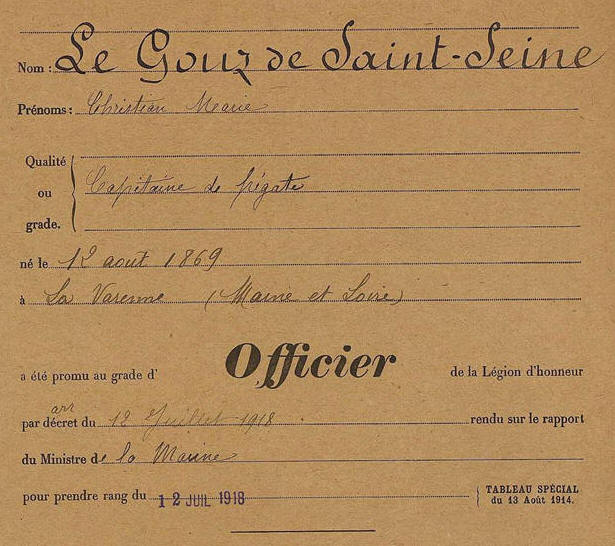 Nom : Le Gouz de Saint-Seine
Prénoms : Christian Marie
Qualité
ou
grade. Capitaine de frégate
né le 12 aout 1869
à La Varenne (Maine et Loire)
a été promu au grade d' Officier de la Légion d'honneur
par décret du arr 12 Juillet 1918 rendu sur le rapport
du Ministre de la Marine
pour prendre rang du 12 JUIL 1918 TABLEAU SPÉCIAL
du 13 Août 1914.